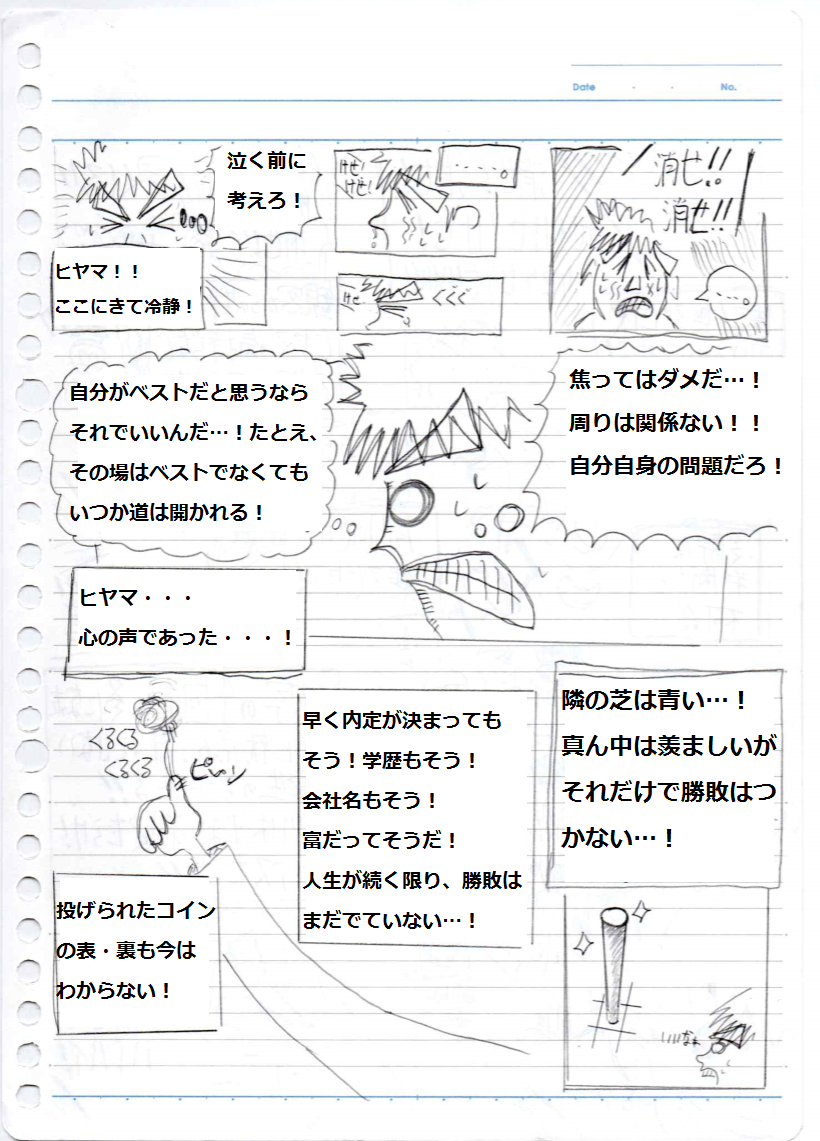 Date ・ ・ No.
消せ!!
消せ!!
・・・・。
・・・・。
けせ!
けせ!
けせ
くくく
泣く前に
考えろ！
ヒヤマ！！
ここにきて冷静！
焦ってはダメだ…！
周りは関係ない！！
自分自身の問題だろ！
自分がベストだと思うなら
それでいいんだ…！たとえ、
その場はベストでなくても
いつか道は開かれる！
ヒヤマ・・・
心の声であった・・・！
隣の芝は青い…！
真ん中は羨ましいが
それだけで勝敗はつ
かない…！
いいなぁ
早く内定が決まっても
そう！学歴もそう！
会社名もそう！
富だってそうだ！
人生が続く限り、勝敗は
まだでていない…！
くるくる
くるくる
ピーン
投げられたコイン
の表・裏も今は
わからない！